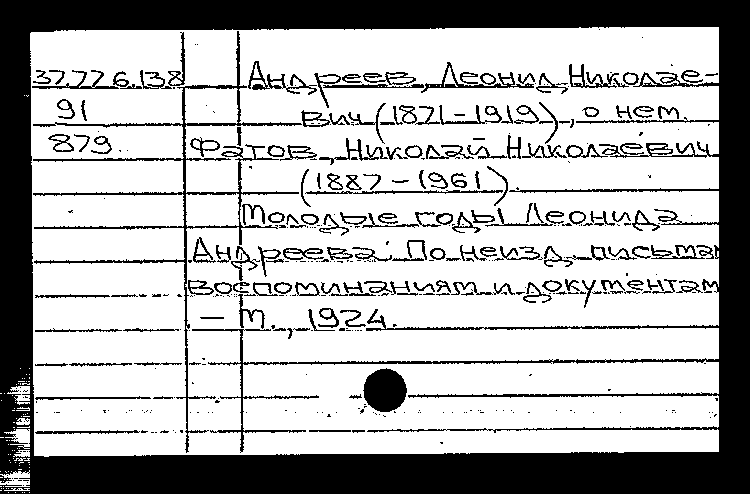 37.77.6.138 Андреев, Леонид Николае-
91 вич (1871-1919), о нем.
879. Фатов, Николай Николаевич
(1887-1961).
Молодые годы Леонида
Андреева: По неизд. письмам
воспоминаниям и документам
- М., 1924.